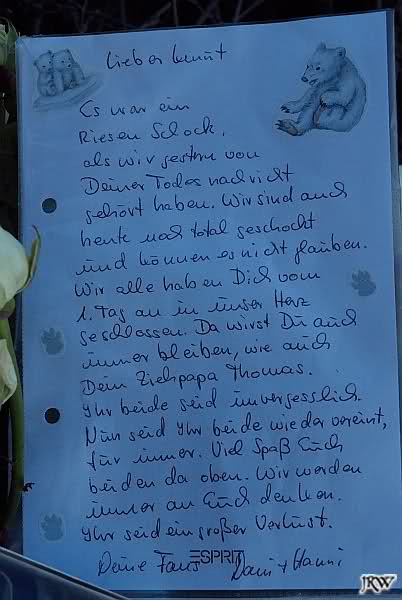 Lieber Knut
Es war ein
Riesen Schock,
als wir gestern von
Deiner Todesnachricht
gehört haben. Wir sind auch
heute noch total geschockt
und können es nicht glauben.
Wir alle haben Dich vom
1. Tag an in unser Herz
geschlossen. Da wirst Du auch
immer bleiben, wie auch
Dein Ziehpapa Thomas.
Ihr beide seid unvergesslich.
Nun seid Ihr beide wieder vereint,
für immer. Viel Spaß Euch
beiden da oben. Wir werden
immer an Euch denken.
Ihr seid ein großer Verlust.
Deine Fans Dani + Hanni
ESPRIT
JRW